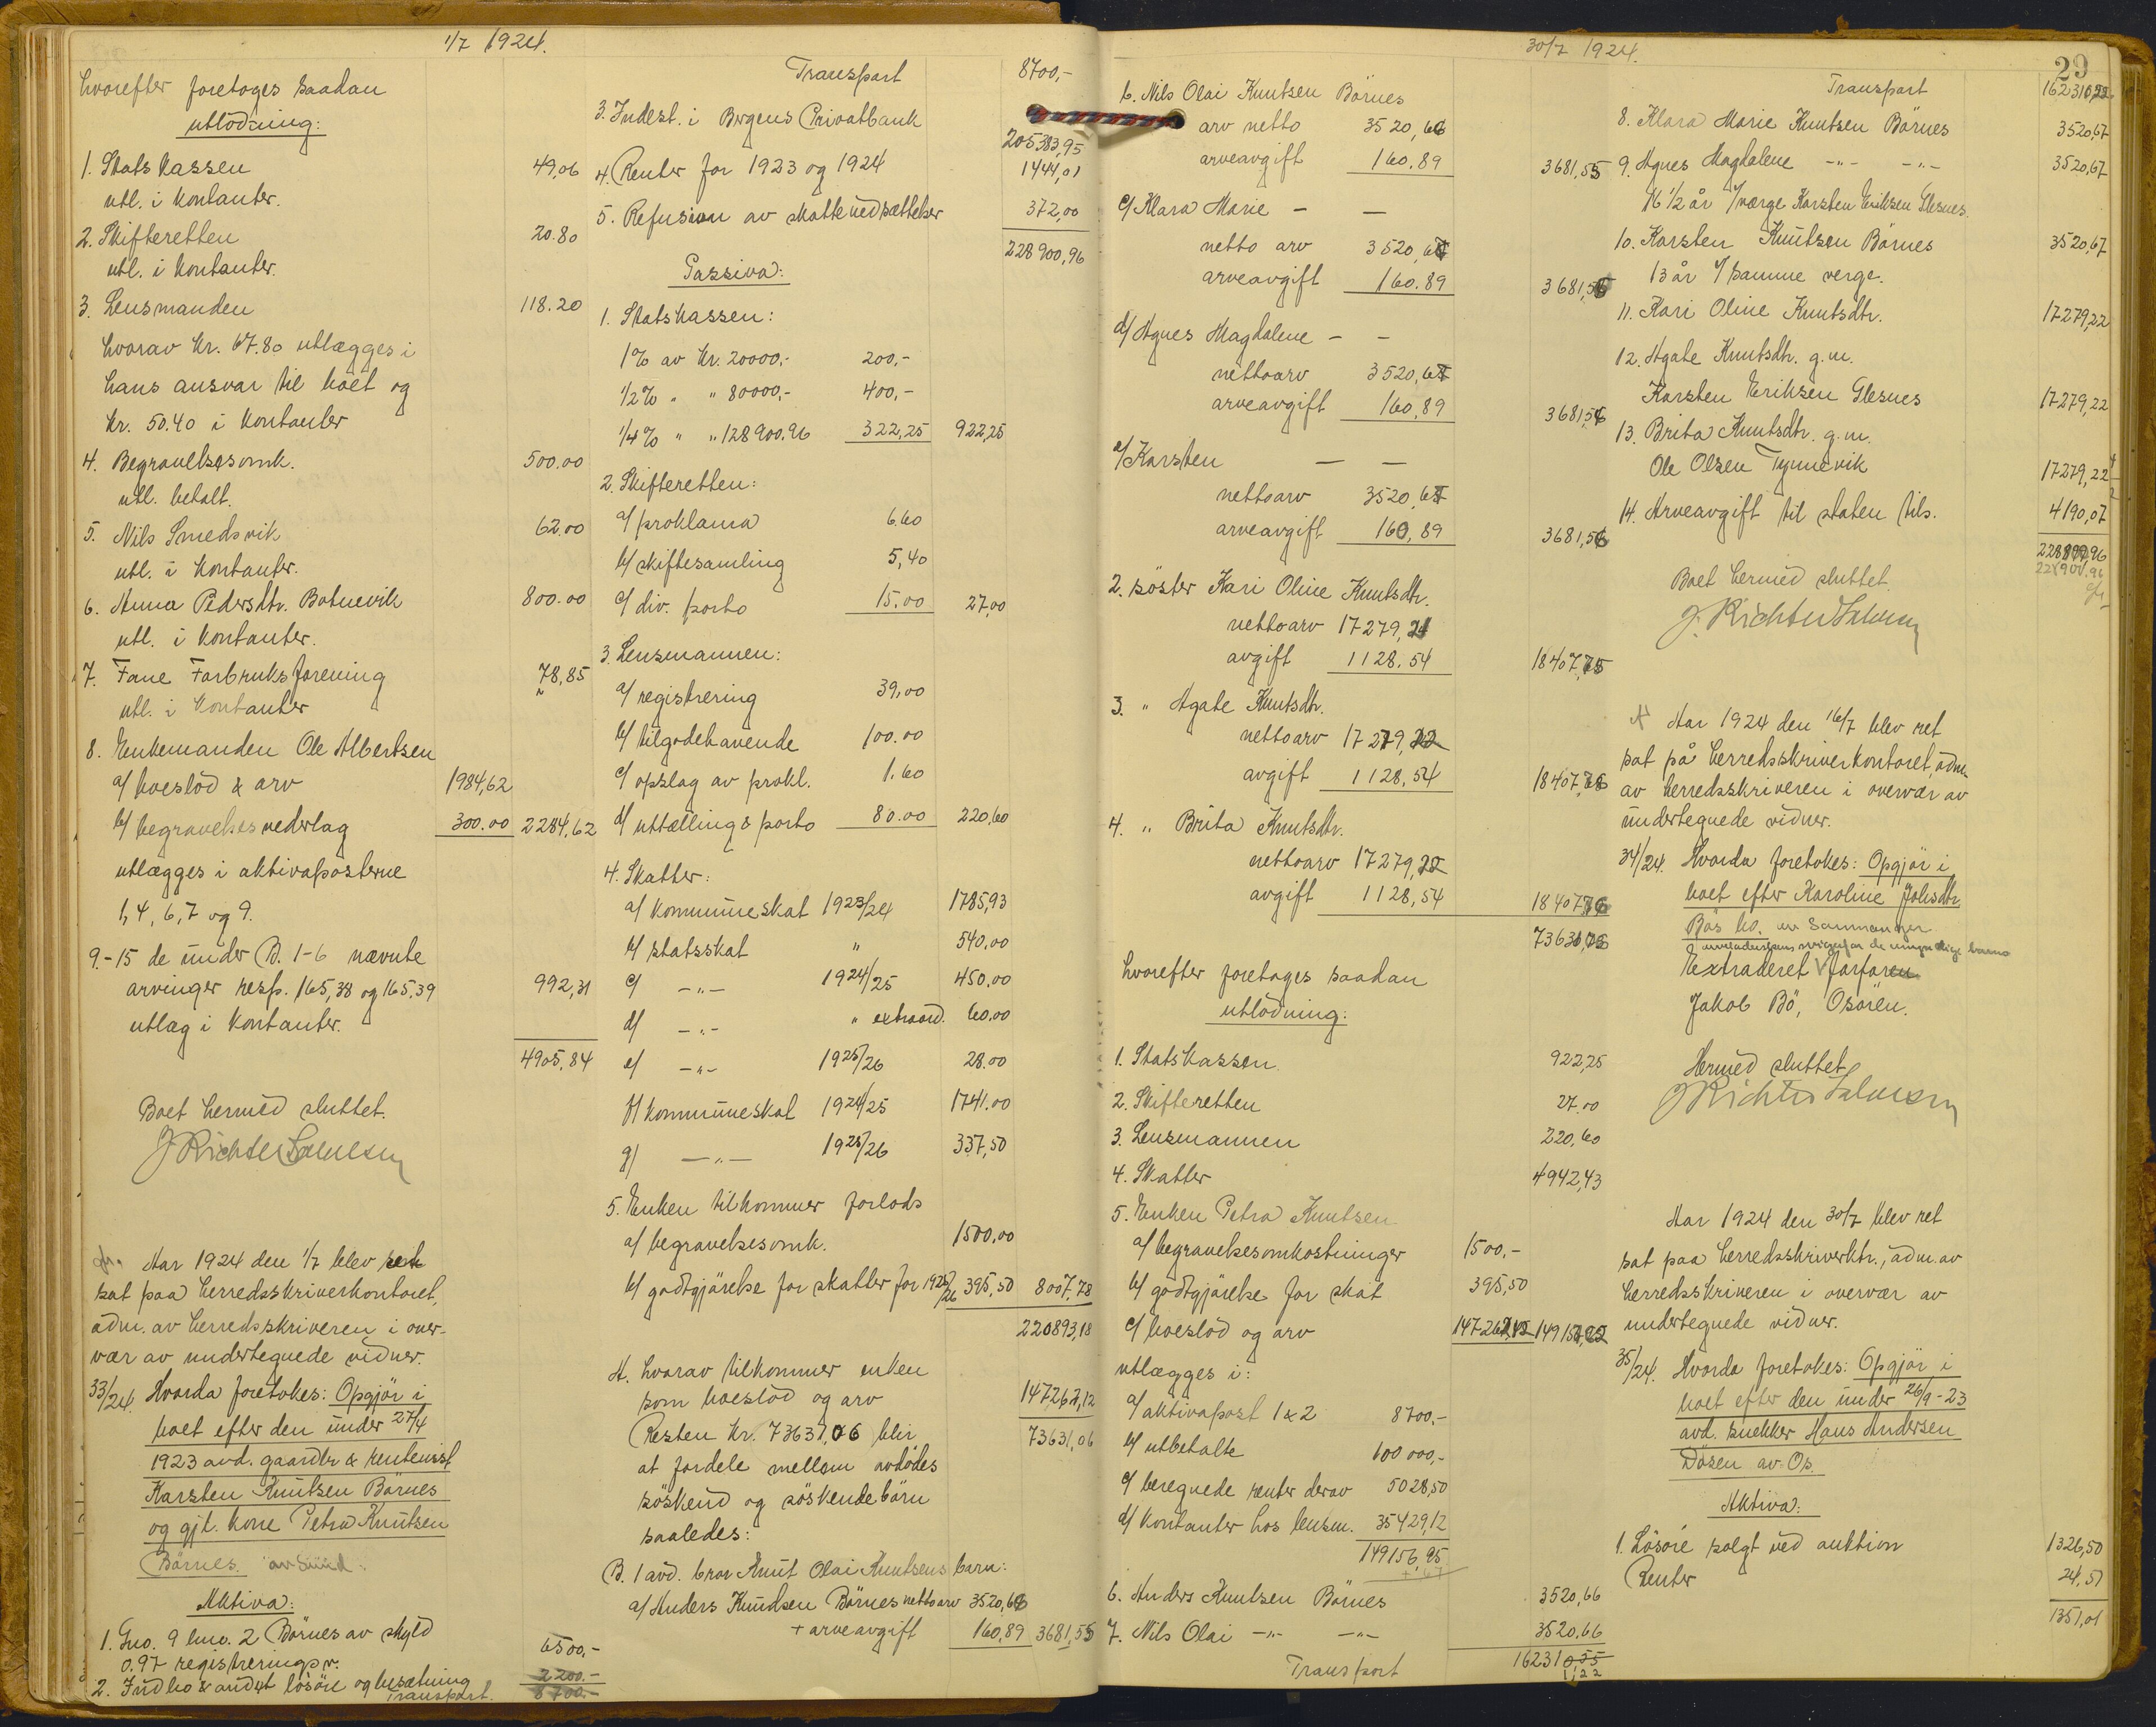 1/7 1924.
hvorefter foretages saadan
utlodning:
1. Statskassen 49,06
utl. i kontanter.
2. Skifteretten 20.80
utl. i kontanter.
3. Lensmanden 118.20
hvorav kr. 67.80 utlægges i
hans ansvar til boet og
kr. 50.40 i kontanter
4. Begravelsesomk. 500.00
utl. betalt.
5. Nils Smedsvik 62.00
utl. i kontanter.
6. Anna Pedersdtr. Botnevik 800.00
utl. i kontanter.
7. Fane Forbruksforening 78,85
utl. i kontanter
8. Enkemanden Ole Albertsen
a/ boeslod & arv 1984,62
b/ begravelsesvederlag 300.00 2284,62
utlægges i aktivaposterne
1, 4, 6, 7 og 9.
9.-15 de under B. 1-6 nævnte
arvinger resp. 165,38 og 165,39 992,31
utlæg i kontanter.
4905,84
Boet hermed sluttet.
J Richter Salvesen
Aar 1924 den 1/7 blev ret
sat paa herredsskriverkontoret,
adm. av herredsskriveren i over-
vær av undertegnede vidner.
33/24. Hvorda foretokes: Opgjör i
boet efter den under 27/4
1923 avd. gaardbr & rentenist
Karsten Knutsen Börnes
og gjl. kone Petra Knutsen
Börnes av Sund.
Aktiva:
1. Gno. 9 bno. 2 Börnes av skyld
0.97 registreringsv. 6500,-
2. Indbo & andet lösöre og besætning 2200.-
Transport. 8700.-
Transport 8700,-
3. Indest. i Bergens Privatbank 205383,95
4. Renter for 1923 og 1924 1444,01
5. Refusion av skattenedsættelser 372,00
228900,96
Passiva:
1. Statskassen:
1% av kr. 20000,- 200,-
1/2% " " 80000,- 400,-
1/4% " " 128900.96 322,25 922,25
2. Skifteretten:
a/ proklama 6.60
b/ skiftesamling 5,40
c/ div. porto 15.00 27,00
3. Lensmannen:
a/ registrering 39,00
b/ tilgodehavende 100.00
c/ opslag av prokl. 1.60
d/ uttælling & porto 80.00 220,60
4. Skatter:
a/ kommuneskat 1923/24 1785,93
b/ statsskat " 540.00
c/ -"- 1924/25 450.00
d/ -"- " extraord. 60.00
e/ -"- 1925/26 28.00
f/ kommuneskat 1924/25 1741.00
g/ -"- 1925/26 337,50
5. Enken tilkommer forlods
a/ begravelsesomk. 1500,00
b/ godtgjörelse for skatter for 1925/26 395,50 8007,78
220893,18
A. hvorav tilkommer enken
som boeslod og arv 147262,12
Resten kr. 73631,06 blir 73631,06
at fordele mellem avdödes
söskend og söskendebörn
saaledes:
B. 1 avd. bror Knut Olai Knutsens barn:
a/ Anders Knudsen Börnes nettoarv 3520,66
+ arveavgift 160,89 3681,55
30/7 1924.
29
b. Nils Olai Knutsen Börnes
arv netto 3520,66
arveavgift 160.89 3681,55
c/ Klara Marie - -
netto arv 3520,67
arveavgift 160.89 3681,56
d/ Agnes Magdalene - -
nettoarv 3520,67
arveavgift 160,89 3681,56
e/ Karsten - -
nettoarv 3520,67
arveavgift 160,89 3681,56
2. söster Kari Oline Knutsdtr.
nettoarv 17279,21
avgift 1128.54 18407,75
3. " Agate Knutsdtr.
nettoarv 17279,22
avgift 1128,54 18407,76
4. " Brita Knutsdtr.
nettoarv 17279,22
avgift 1128,54 18407,76
73631,05
hvorefter foretages saadan
utlodning:
1. Statskassen 922,25
2. Skifteretten 27.00
3. Lensmannen 220,60
4. Skatter 4942,43
5. Enken Petra Knutsen
a/ begravelsesomkostninger 1500,-
b/ godtgjörelse for skat 395,50
c/ boeslod og arv
utlægges i:
a/ aktivapost 1 & 2 8700,-
b/ utbetalte 100000,-
c/ beregnede renter derav 5028,50
d/ kontanter hos lensm. 35429,12
149156,95
6. Anders Knutsen Börnes 3520,66
7. Nils Olai -"- -"- 3520,66
Transport
Transport
8. Klara Marie Knutsen Börnes 3520,67
9. Agnes Magdalene -"- -"- 3520,67
16 1/2 år / værge Karsten Eriksen Glesnes.
10. Karsten Knutsen Börnes 3520,67
13 år / samme verge.
11. Kari Oline Knutsdtr. 17279,22
12. Agate Knutsdtr. g.m.
Karsten Eriksen Glesnes 17279,22
13. Brita Knutsdtr. g.m.
Ole Olsen Tynnevik 17279,22
14. Arveavgift til staten tils. 4190,07
228900.96
Boet hermed sluttet.
J. Richter Salvesen
Aar 1924 den 16/7 blev ret
sat på herredsskriverkontoret, adm.
av herredsskriveren i overvær av
undertegnede vidner.
34/24. Hvorda foretokes: Opgjör i
boet efter Karoline Johsdtr
Extraderet
Jakob Bö, Osören.
Hermed sluttet
J Richter Salvesen
Aar 1924 den 30/7 blev ret
sat paa herredsskriverktr., adm. av
herredsskriveren i overvær av
undertegnede vidner.
35/24. Hvorda foretokes: Opgjör i
boet efter den under 26/9-23
avd. snekker Hans Andersen
Døsen av Os.
Aktiva:
1. Lösöre solgt ved auktion 1326,50
Renter 24,51
1351,01